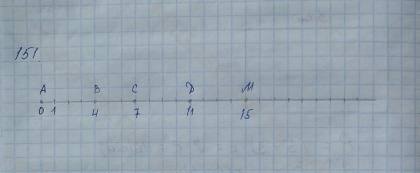 151.
A B C D M
0 1 4 7 11 15